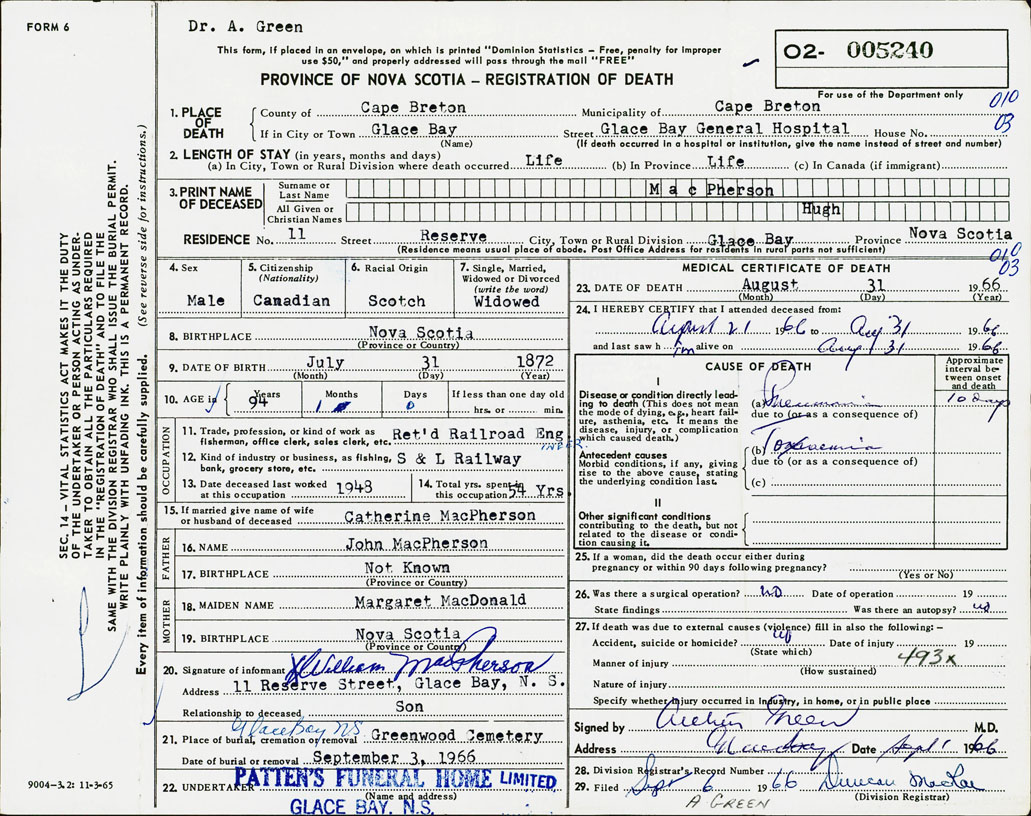 FORM 6
Dr. A. Green
This form, if placed in an envelope, on which is printed "Dominion Statistics - Free, penalty for improper
use $50," and properly addressed will pass through the mail "FREE"
PROVINCE OF NOVA SCOTIA - REGISTRATION OF DEATH
O2- 005240
For use of the Department only
010
03
1. PLACE OF DEATH
County of Cape Breton Municipality of Cape Breton
If in City or Town Glace Bay Street Glace Bay General Hospital House No.
(Name) (If death occurred in a hospital or institution, give the name instead of street and number)
2. LENGTH OF STAY (in years, months and days)
(a) In City, Town or Rural Division where death occurred Life (b) In Province Life (c) In Canada (if immigrant)
3. PRINT NAME OF DECEASED
Surname or Last Name MacPherson
All Given or Christian Names Hugh
RESIDENCE No. 11 Street Reserve City, Town or Rural Division Glace Bay Province Nova Scotia
(Residence means usual place of abode. Post Office Address for residents in rural parts not sufficient)
010
03
4. Sex
Male
5. Citizenship
(Nationality)
Canadian
6. Racial Origin
Scotch
7. Single, Married,
Widowed or Divorced
(write the word)
Widowed
8. BIRTHPLACE Nova Scotia
(Province or Country)
9. DATE OF BIRTH July 31 1872
(Month) (Day) (Year)
10. AGE in
Years 94
Months 1
Days 0
If less than one day old
hrs. or min.
OCCUPATION
11. Trade, profession, or kind of work as
fisherman, office clerk, sales clerk, etc. Ret'd Railroad Eng
INEER
12. Kind of industry or business, as fishing,
bank, grocery store, etc. S & L Railway
13. Date deceased last worked
at this occupation 1948
14. Total yrs. spent in
this occupation 54 Yrs.
15. If married give name of wife
or husband of deceased Catherine MacPherson
FATHER
16. NAME John MacPherson
17. BIRTHPLACE Not Known
(Province or Country)
MOTHER
18. MAIDEN NAME Margaret MacDonald
19. BIRTHPLACE Nova Scotia
(Province or Country)
20. Signature of informant X William MacPherson
Address 11 Reserve Street, Glace Bay, N. S.
Relationship to deceased Son
Glace Bay NS
21. Place of burial, cremation or removal Greenwood Cemetery
Date of burial or removal September 3, 1966
22. UNDERTAKER PATTEN'S FUNERAL HOME LIMITED
(Name and address)
GLACE BAY, N.S.
MEDICAL CERTIFICATE OF DEATH
23. DATE OF DEATH August 31 1966
(Month) (Day) (Year)
24. I HEREBY CERTIFY that I attended deceased from:
August 21 1966 to Aug 31 1966
and last saw h im alive on Aug 31 1966
CAUSE OF DEATH
Approximate
interval be-
tween onset
and death
I
Disease or condition directly lead-
ing to death (This does not mean
the mode of dying, e.g., heart fail-
ure, asthenia, etc. It means the
disease, injury, or complication
which caused death.)
(a) Pneumonia 10 days
due to (or as a consequence of)
Antecedent causes
Morbid conditions, if any, giving
rise to the above cause, stating
the underlying condition last.
(b) Toxaemia
due to (or as a consequence of)
(c)
II
Other significant conditions
contributing to the death, but not
related to the disease or condi-
tion causing it.
25. If a woman, did the death occur either during
pregnancy or within 90 days following pregnancy?
(Yes or No)
26. Was there a surgical operation? no Date of operation 19
State findings Was there an autopsy? no
27. If death was due to external causes (violence) fill in also the following: -
Accident, suicide or homicide? Date of injury 19
(State which)
493x
Manner of injury
(How sustained)
Nature of injury
Specify whether injury occurred in Industry, in home, or in public place
Signed by Arthur Green M.D.
Address Glace Bay Date Sept 1 1966
28. Division Registrar's Record Number
29. Filed Sept 6 1966 Duncan MacRae
(Division Registrar)
A GREEN
SEC. 14 - VITAL STATISTICS ACT MAKES IT THE DUTY
OF THE UNDERTAKER OR PERSON ACTING AS UNDER-
TAKER TO OBTAIN ALL THE PARTICULARS REQUIRED
IN THE "REGISTRATION OF DEATH" AND TO FILE THE
SAME WITH THE DIVISION REGISTRAR WHO SHALL ISSUE THE BURIAL PERMIT.
WRITE PLAINLY WITH UNFADING INK. THIS IS A PERMANENT RECORD.
Every item of information should be carefully supplied. (See reverse side for instructions.)
9004-3.2: 11-3-65